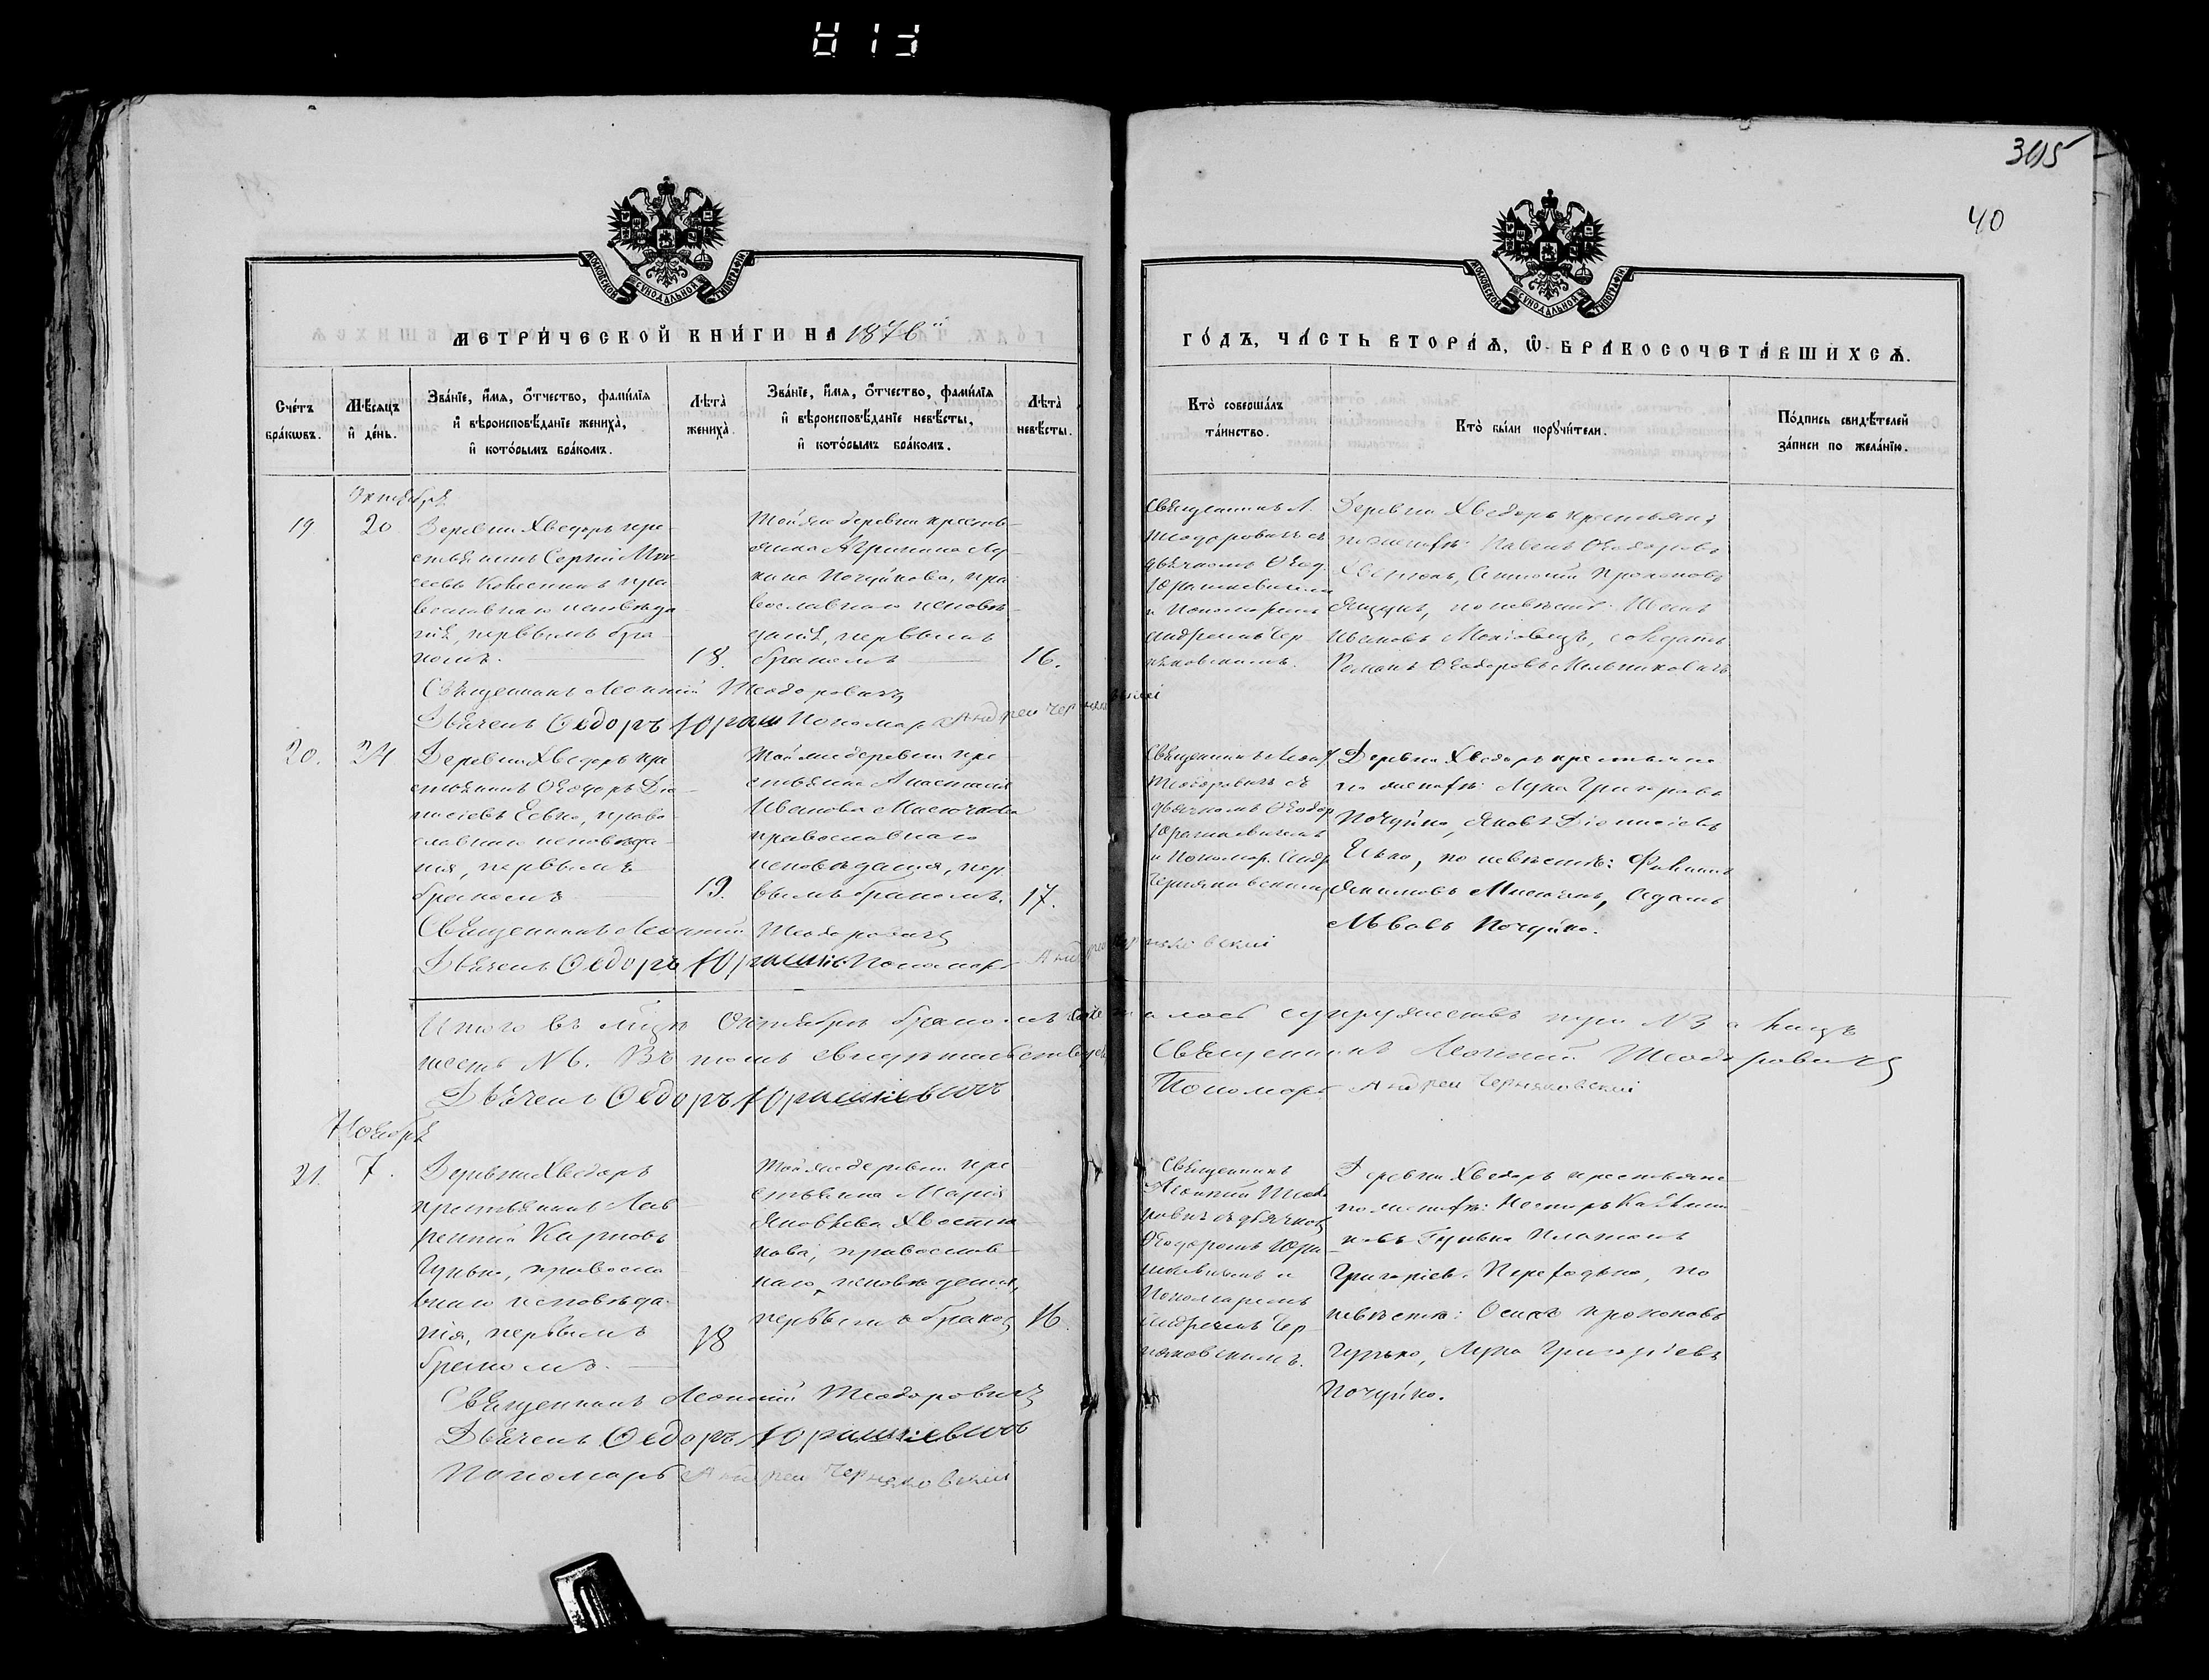 305
40
МОСКОВСКОЙ СѴНОДАЛЬНОЙ ТИПОГРАФІИ
МОСКОВСКОЙ СѴНОДАЛЬНОЙ ТИПОГРАФІИ
МЕТРИ́ЧЕСКОЙ КНИ́ГИ НА 1876й
ГО́ДЪ, ЧА́СТЬ ВТОРА́Ѧ, Ѽ БРАКОСОЧЕТА́ВШИХСѦ.
Сче́тъ бра́кѡвъ.
Мѣ́сяцъ и҆ де́нь.
Зва́нїе, и҆́мя, ѻ҆́тчество, фами́лїя
и҆ вѣроисповѣ́данїе жениха̀,
и҆ кото́рымъ бра́комъ.
Лѣта̀ жениха̀.
Зва́нїе, и҆́мя, ѻ҆́тчество, фами́лїя
и҆ вѣроисповѣ́данїе невѣ́сты,
и҆ кото́рымъ бра́комъ.
Лѣта̀ невѣ́сты.
Кто̀ соверша́лъ
та́инство.
Кто̀ бы́ли порꙋчи́тели.
По́дпись свидѣ́телей
за́писи по жела́нїю.
Октября
19
20
Деревни Хведоръ кре-
стьянинъ Сергій Мои-
сеевъ пра-
вославнаго исповѣда-
нія, первымъ бра-
комъ.
18.
Той же деревни кресть-
янка Агрипина Лу-
кина Почуйкова, пра-
вославнаго исповѣ-
данія, первымъ
бракомъ
16.
Священникъ Л.
Теодоровичъ съ
дьячкомъ Ѳеод.
Юрашкевичемъ
и Пономаремъ
Андреемъ Чер-
няковскимъ.
Деревни Хведоръ крестьяне
по женихѣ: Павелъ Ѳеодоровъ
Антоній Прокоповъ
по невѣстѣ: Иванъ
Ивановъ солдатъ
Романъ Ѳеодоровъ Мельниковичъ
Священникъ Леонтій Теодоровичъ
Дьячекъ Ѳедоръ Юраш Пономар. Андрей Черняковскій
20.
24
Деревни Хведоръ кре-
стьянинъ Ѳеодоръ Діо-
нисіевъ Евко, право-
славнаго исповѣда-
нія, первымъ
бракомъ
19.
Той же деревни кре-
стьянка Анастасія
Иванова
православнаго
исповѣданія, пер-
вымъ бракомъ.
17.
Священникъ Леон.
Теодоровичъ съ
дьячкомъ Ѳеодор.
Юрашкевичемъ
и Пономар. Андр.
Черняковскимъ
Деревни Хведоръ крестьяне
по женихѣ: Лука Григоровъ
Почуйко, Яковъ Діонисіевъ
Евко, по невѣстѣ:
Якимовъ Адамъ
Львовъ Почуйко.
Священникъ Леонтій Теодоровичъ
Дьячекъ Ѳедоръ Юрашкев. Пономарь Андрей Черняковскій
Итого въ м̃цѣ Октябрѣ бракомъ сочеталось супружествъ три №3 а лицъ
шесть №6. Въ томъ свидѣтельствуемъ
Священникъ Леонтій Теодоровичъ
Дьячекъ Ѳедоръ Юрашкевичъ
Пономарь Андрей Черняковскій
Ноября
21.
7.
Деревни Хведоръ
крестьянинъ Лав-
рентій Карповъ
Гурько, правосла-
внаго исповѣда-
нія, первымъ
бракомъ.
18
Той же деревни кре-
стьянка Марія
Яковлева Хвостю-
кова, православ-
наго исповѣданія,
первымъ бракомъ
16.
Священникъ
Леонтій Теодо-
ровичъ съ дьячкомъ
Ѳеодоромъ Юра-
шкевичемъ и
Пономаремъ
Андреемъ Чер-
няковскимъ.
Деревни Хведоръ крестьяне
по женихѣ: Несторъ
Гурько Платонъ
Григоріев. по
невѣстѣ: Осипъ Прокоповъ
Гурько, Лука Григоріевъ
Почуйко.
Священникъ Леонтій Теодоровичъ
Дьячекъ Ѳедоръ Юрашкевичъ
Пономарь Андрей Черняковскій